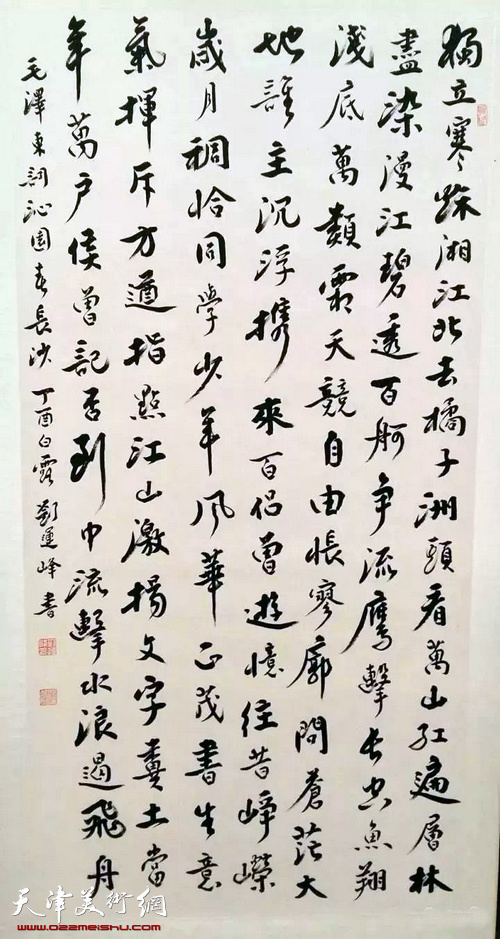 獨立寒秋湘江北去橘子洲頭看萬山紅遍層林
盡染漫江碧透百舸争流鷹擊長空魚翔
淺底萬類霜天競自由悵寥廓問蒼茫大
地誰主沉浮携來百侣曾遊憶往昔崢嶸
歲月稠恰同學少年風華正茂書生意
氣揮斥方遒指點江山激揚文字糞土當
年萬户侯曾記否到中流擊水浪遏飛舟
毛澤東詞沁園春長沙 丁酉白露 劉運峰書
天津美術網
www.022meishu.com